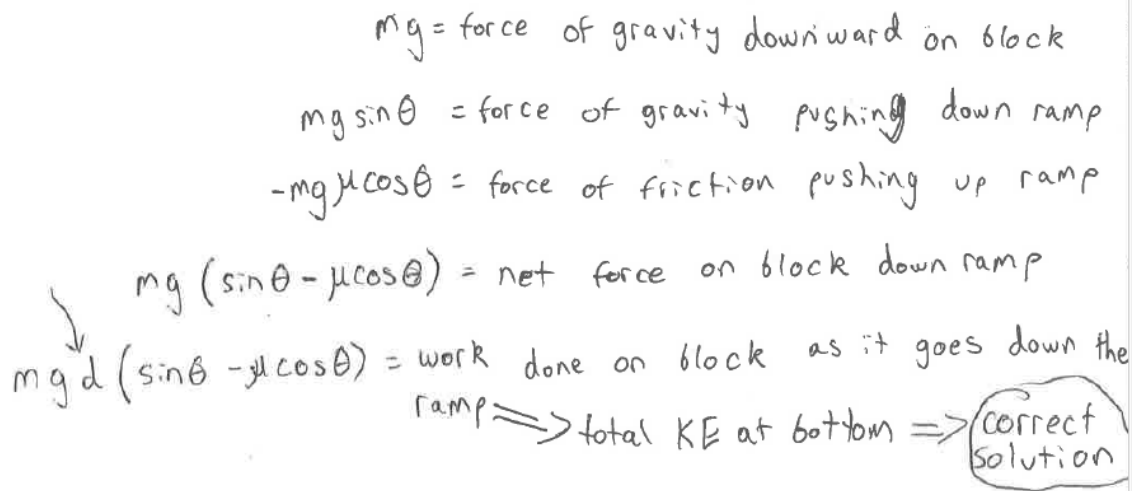 mg = force of gravity downward on block
mg sinθ = force of gravity pushing down ramp
-mg μcosθ = force of friction pushing up ramp
mg (sinθ - μcosθ) = net force on block down ramp
mgd (sinθ - μcosθ) = work done on block as it goes down the
ramp ⟹ total KE at bottom ⟹ correct
solution